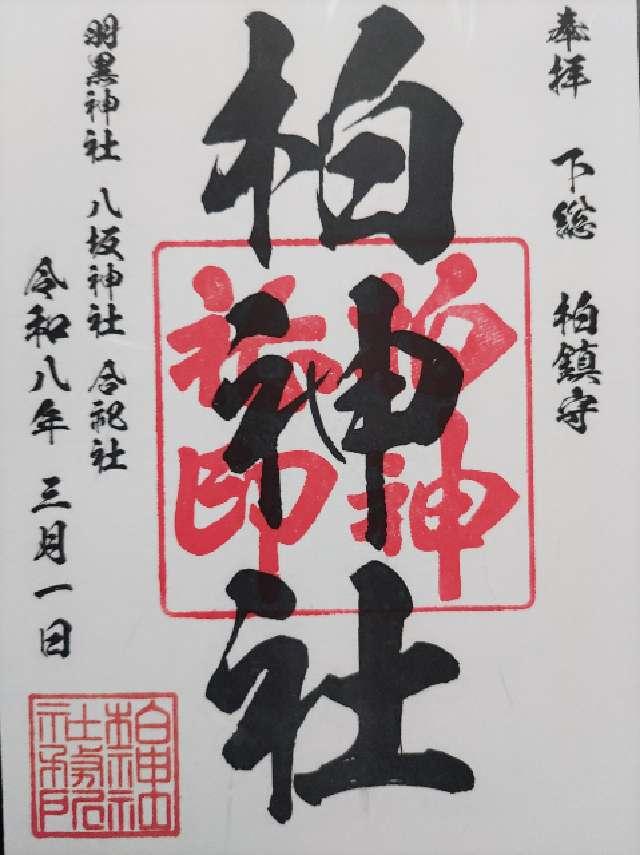 奉拝 下総 柏鎮守
柏神社
柏神社印
羽黒神社 八坂神社 合祀社
令和八年 三月一日
柏神社社務所